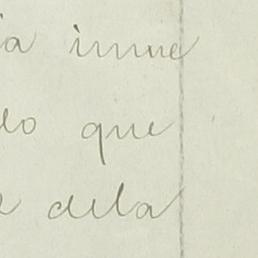 ia inme
do que
dela